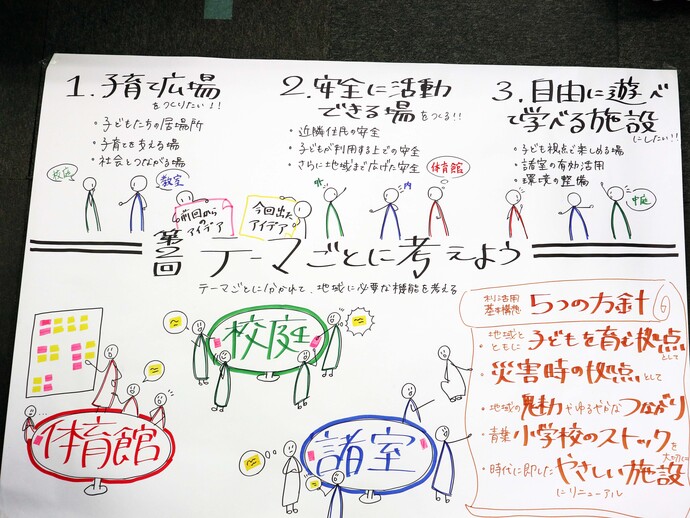 1. 子育て広場
をつくりたい!!
・子どもたちの居場所
・子育てを支える場
・社会とつながる場
2. 安全に活動
できる場をつくる!!
・近隣住民の安全
・子どもが利用する上での安全
・さらに地域まで広げた安全
3. 自由に遊べて
学べる施設
にしたい!!
・子ども視点で楽しめる場
・諸室の有効活用
・環境の整備
校庭
教室
前回からの
アイデア
今回出た
アイデア
外
内
体育館
中庭
第2回 テーマごとに考えよう
テーマごとに分かれて、地域に必要な機能を考える
校庭
体育館
諸室
利活用
基本構想 5つの方針
・地域と
ともに 子どもを育む拠点
として
・災害時の拠点として
・地域の魅力やゆるやかなつながり
・青葉小学校のストックを
大切に
・時代に即したやさしい施設
にリニューアル